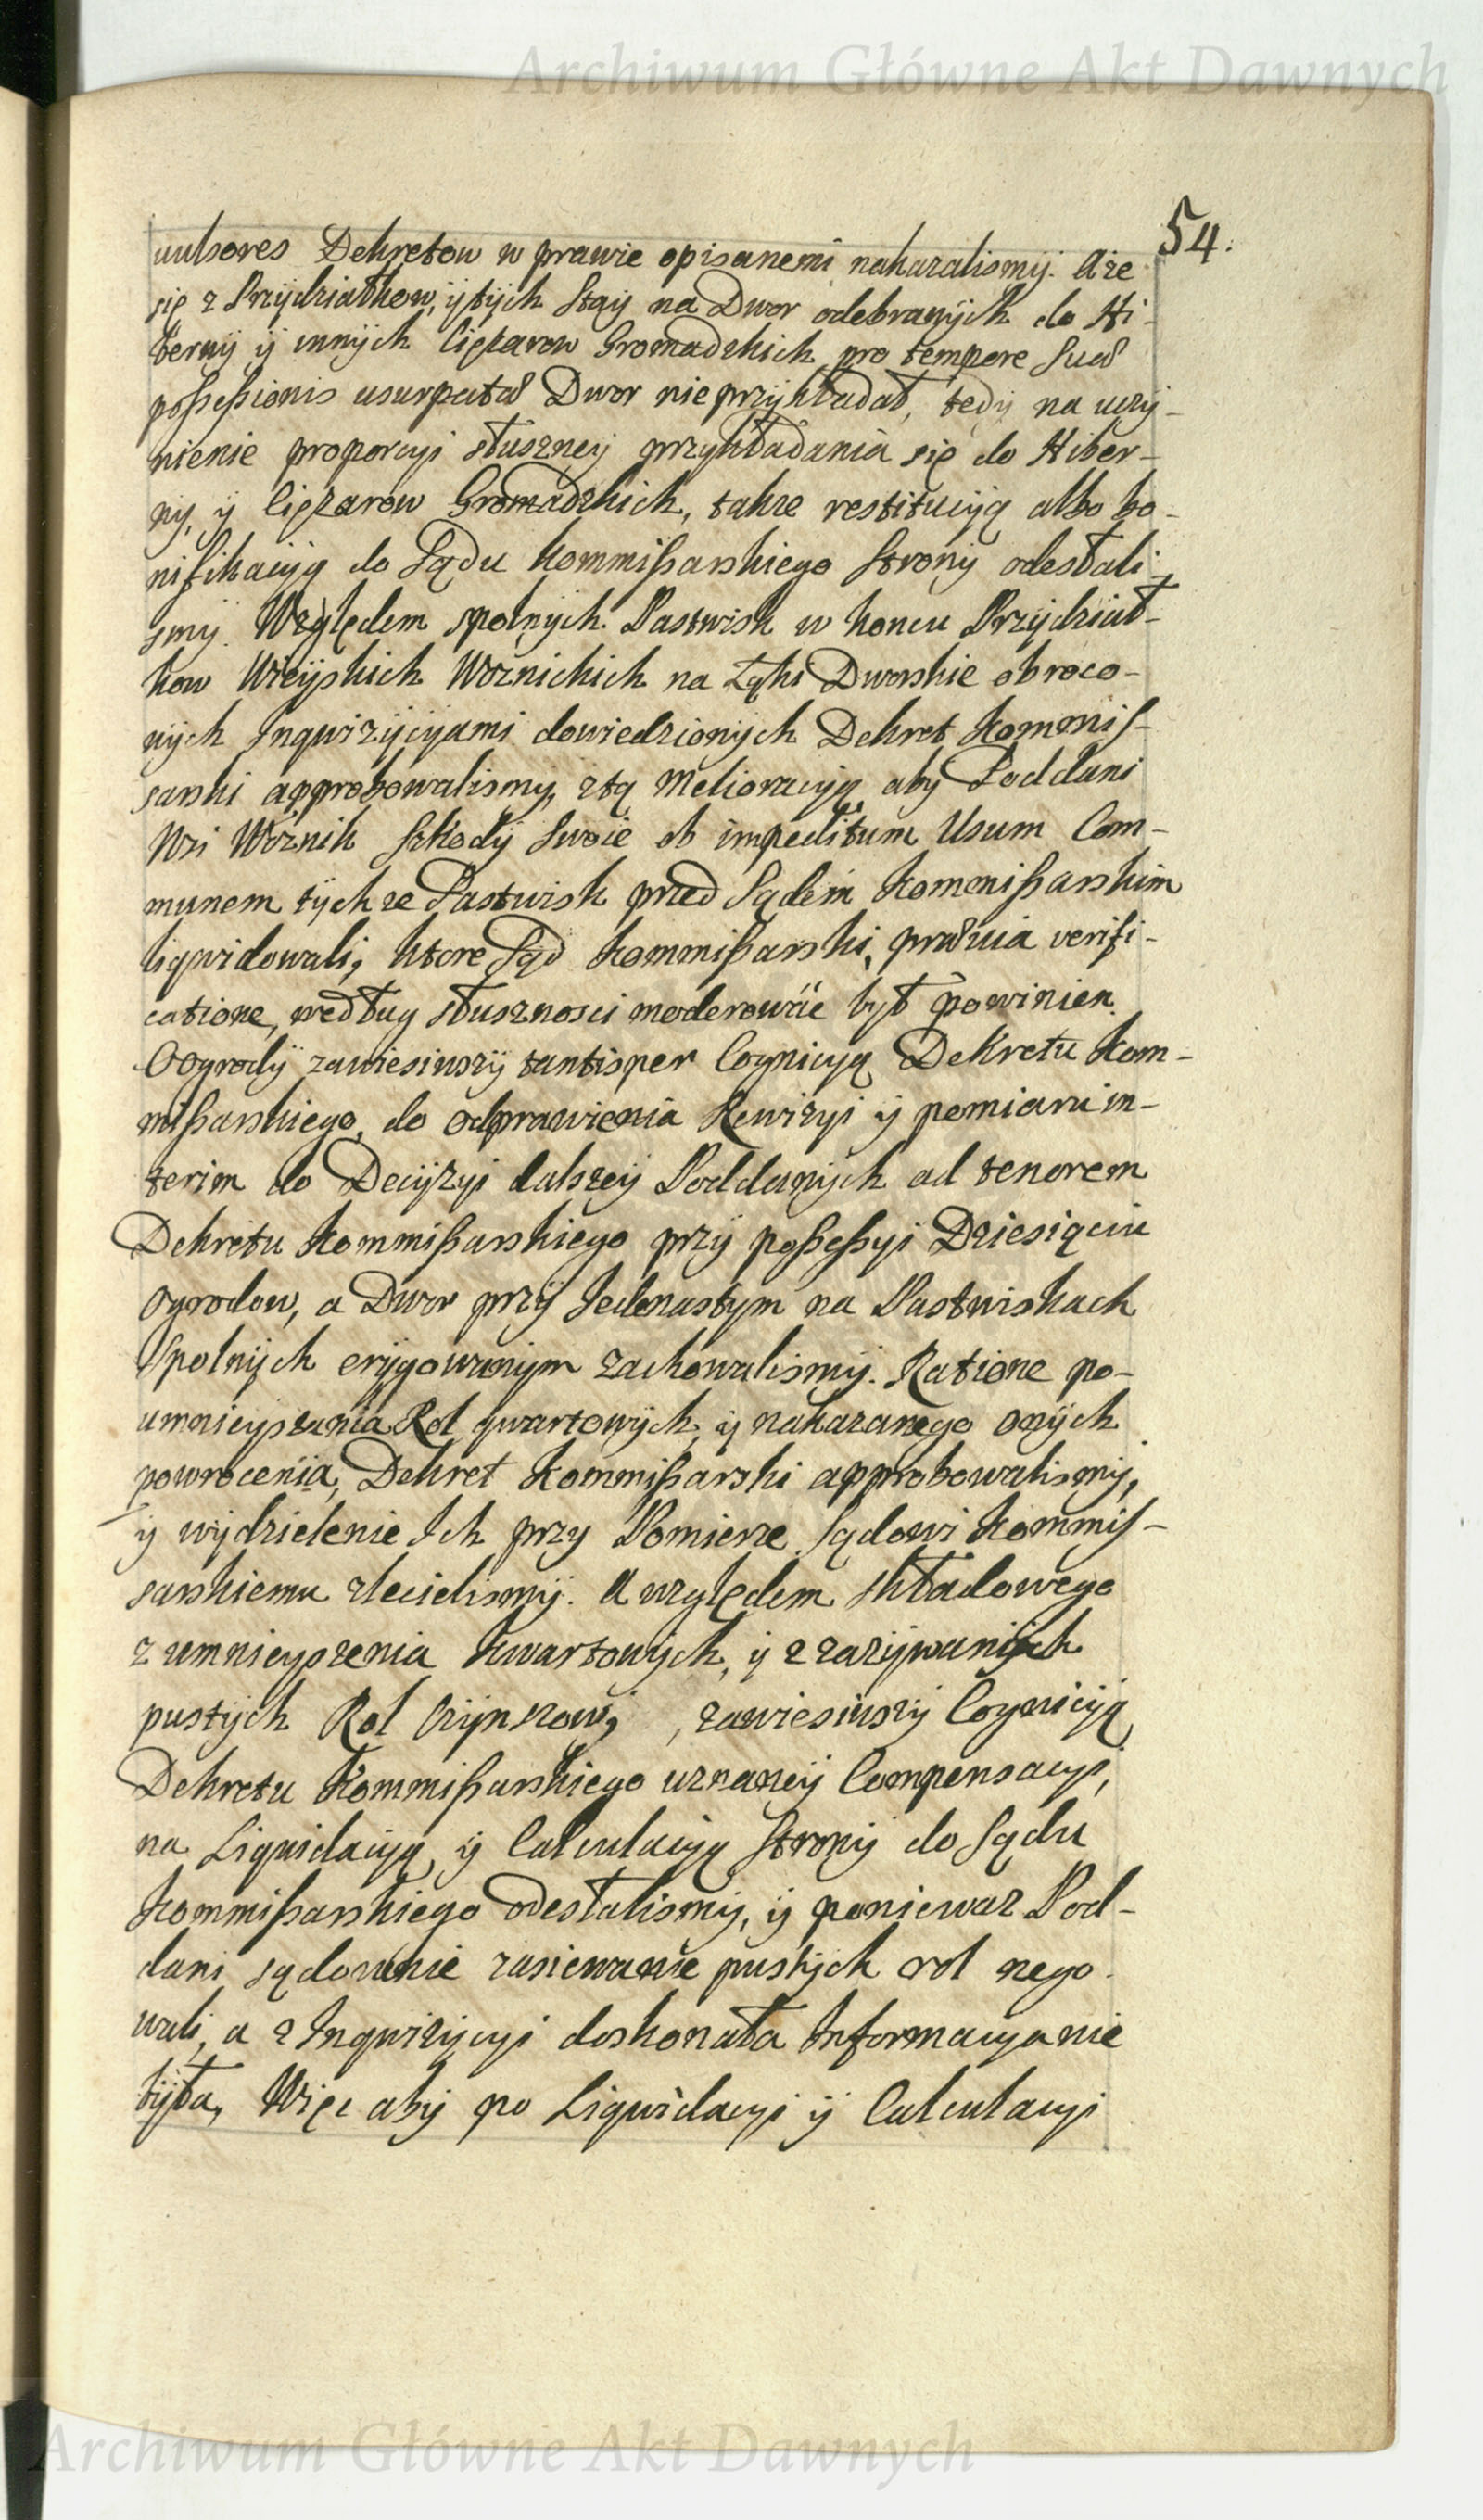 Archiwum Główne Akt Dawnych
54.
vulsores Dekretow w prawie opisanemi nakazalismy. A że
się z Przydziałkow, y tych Stay na Dwor odebranych do Hi-
berny y innych Ciężarow Gromadzkich pro tempore suæ
possessionis usurpatæ Dwor nie przykładał, tedy na uczy-
nienie proporcyi słuszney przykładania się do Hiber-
ny, y Ciężarow Gromadzkich, także restitucyą albo bo-
nifikacyą do Sądu Kommissarskiego Strony odesłali-
smy. Względem spolnych Pastwisk w koncu Przydział-
kow Wieyskich Woznickich na Łąki Dworskie obroco-
nych Inqwizycyami dowiedzionych Dekret Kommis-
sarski approbowalismy, z tą melioracyą aby Poddani
Wsi Woznik Szkody Swoie ob impeditum Usum Com-
munem tychże Pastwisk przed Sądem Kommissarskim
liqwidowali, ktore Sąd Kommissarski, prævia verifi-
catione, według słusznosci moderować był powinien.
O Ogrody zawiesiwszy tantisper Cognicyą Dekretu Kom-
missarskiego, do odprawienia Rewizyi y pomiaru in-
terim do Decyzyi dalszey Poddanych ad tenorem
Dekretu Kommissarskiego przy possessyi Dziesiąciu
Ogrodow, a Dwor przy Jedenastym na Pastwiskach
Spolnych erygowanym zachowalismy. Ratione po-
umnieyszania Rol qwartowych, y nakazanego onych
powrocenia, Dekret Kommissarski approbowalismy,
y wydzielenie Ich przy Pomierze Sądowi Kommis-
sarskiemu zlecielismy. A względem składowego
z umnieyszenia kwartowych, y z zazywanych
pustych Rol Czynszow, zawiesiwszy Cognicyą
Dekretu Kommissarskiego uznaney Compensacyi,
na Liqwidacyą, y Calculacyą Strony do Sądu
Kommissarskiego odesłalismy, y poniewaz Pod-
dani sądownie zasiewanie pustych rol nego-
wali, a z Inqwizycyi doskonała Informacya nie
była, Więc aby po Liqwidacyi y Calculacyi
Archiwum Główne Akt Dawnych